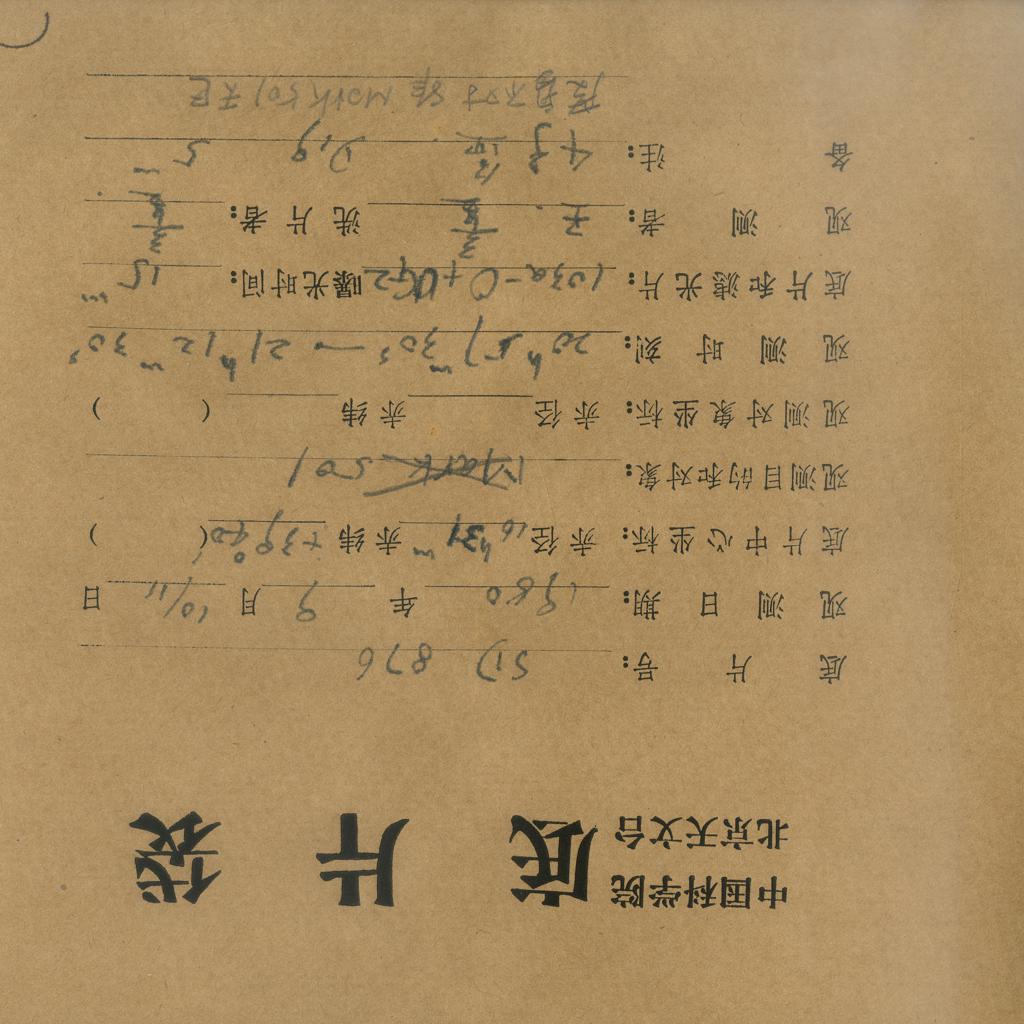 中国科学院
北京天文台
底 片 袋
底 片 号: SD 876
观 测 日 期: 1980 年 9 月 10/11 日
底片中心坐标: 赤经 16ʰ 31ᵐ 赤纬 +39°40′ ( )
观测目的和对象: Mark 501
观测对象坐标: 赤经 赤纬 ( )
观 测 时 刻: 20ʰ57ᵐ30ˢ — 21ʰ12ᵐ30ˢ
底片和滤光片: 103a-O+UG2 曝光时间: 15ᵐ
观 测 者: 王 洗片者:
备 注: 4号 D19 5ᵐ
不对 非 Mark 501天区